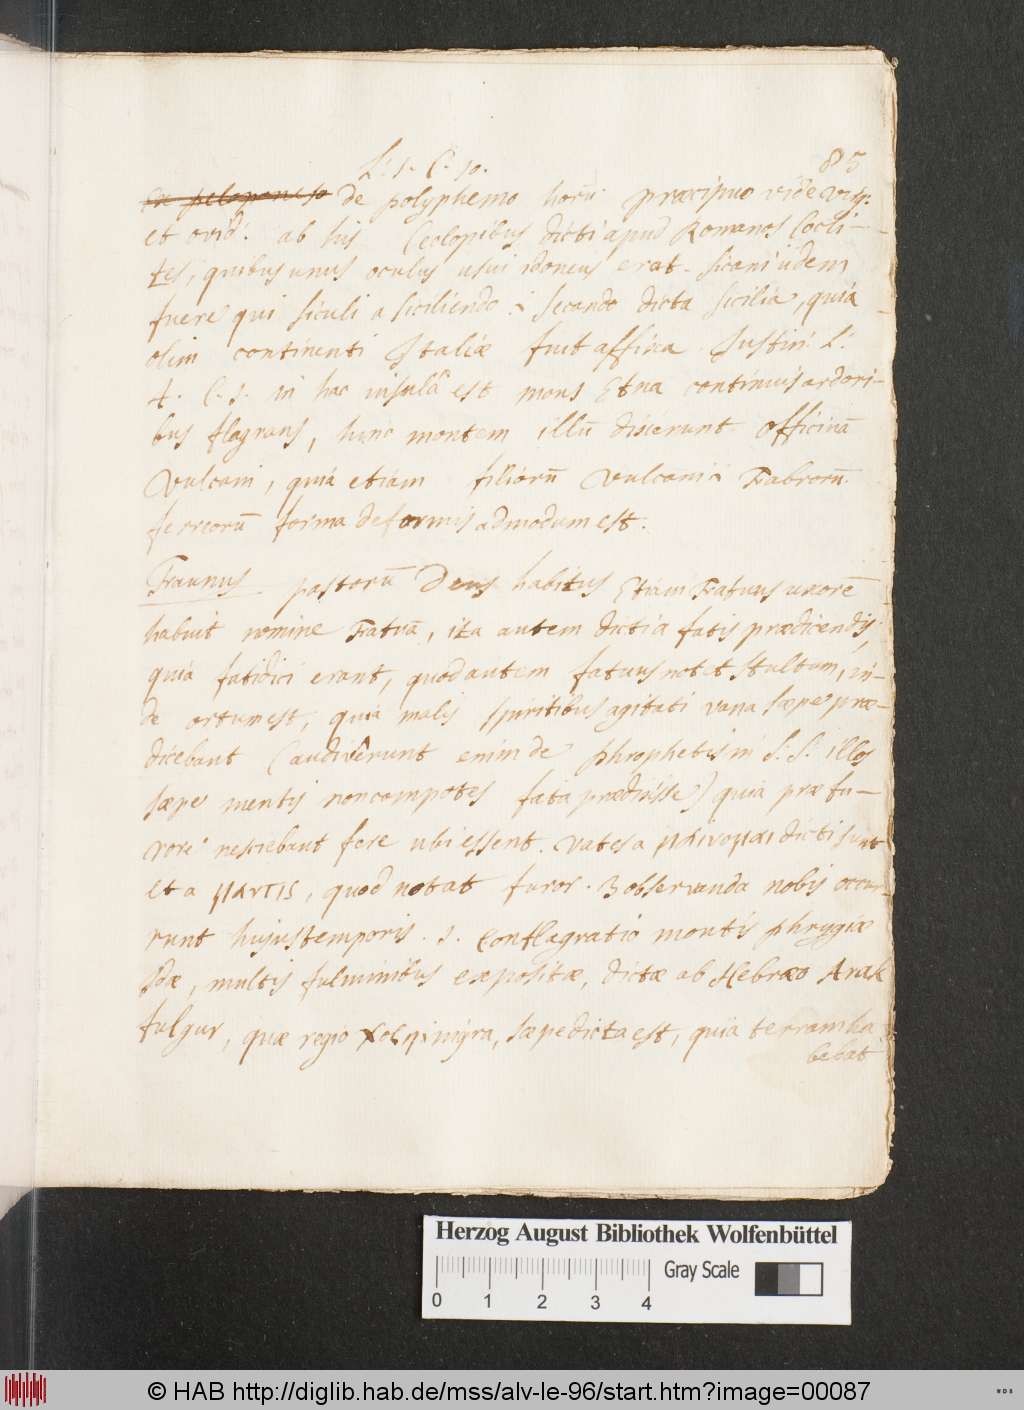 L: 1. C. 10. 85
ex peloponeso de polyphemo horū praecipuo vide virg:
et ovid: ab his Ceclopibus dicti apud Romanos Cocli-
tes, quibus unus oculus usui idoneus erat. Sicani iidem
fuere qui siculi a siciliendo i secando dicta sicilia, quia
olim continenti Italiæ fuit affixa. Justin: L:
4. C. 1. in hac insulâ est mons Etna continuis ardori-
bus flagrans, hunc montem illū dixerunt officinā
Vulcani, quia etiam filiorū Vulcani i Fabrorū
ferreorū forma deformis admodum est.
Faunus pastorū Deus habitus Etiam Fatuus uxorē
habuit nomine Fatuā, ita autem dicti â fatis prædicendis,
quia fatidici erant, quod autem fatuus notet stultum, in-
de ortum est, quia malis spiritibus agitati vana sæpe præ-
dicebant (audivêrunt enim de phrophetis in S: S. illos
sæpe mentis non compotes fata prædixisse) quia præ fu-
rore nesciebant fere ubi essent. Vates a μαινομαι dicti sunt
et a μαντις, quod notat furor. 3 observanda nobis occur-
runt hujus temporis. 1. Conflagratio montis phrygiæ
Idæ, multis fulminibus expositæ, dictæ ab Hebræo Arak
fulgur, quæ regio sæpe dicta est, quia terram ha
bebat
Herzog August Bibliothek Wolfenbüttel
Gray Scale
0 1 2 3 4
© HAB http://diglib.hab.de/mss/alv-le-96/start.htm?image=00087